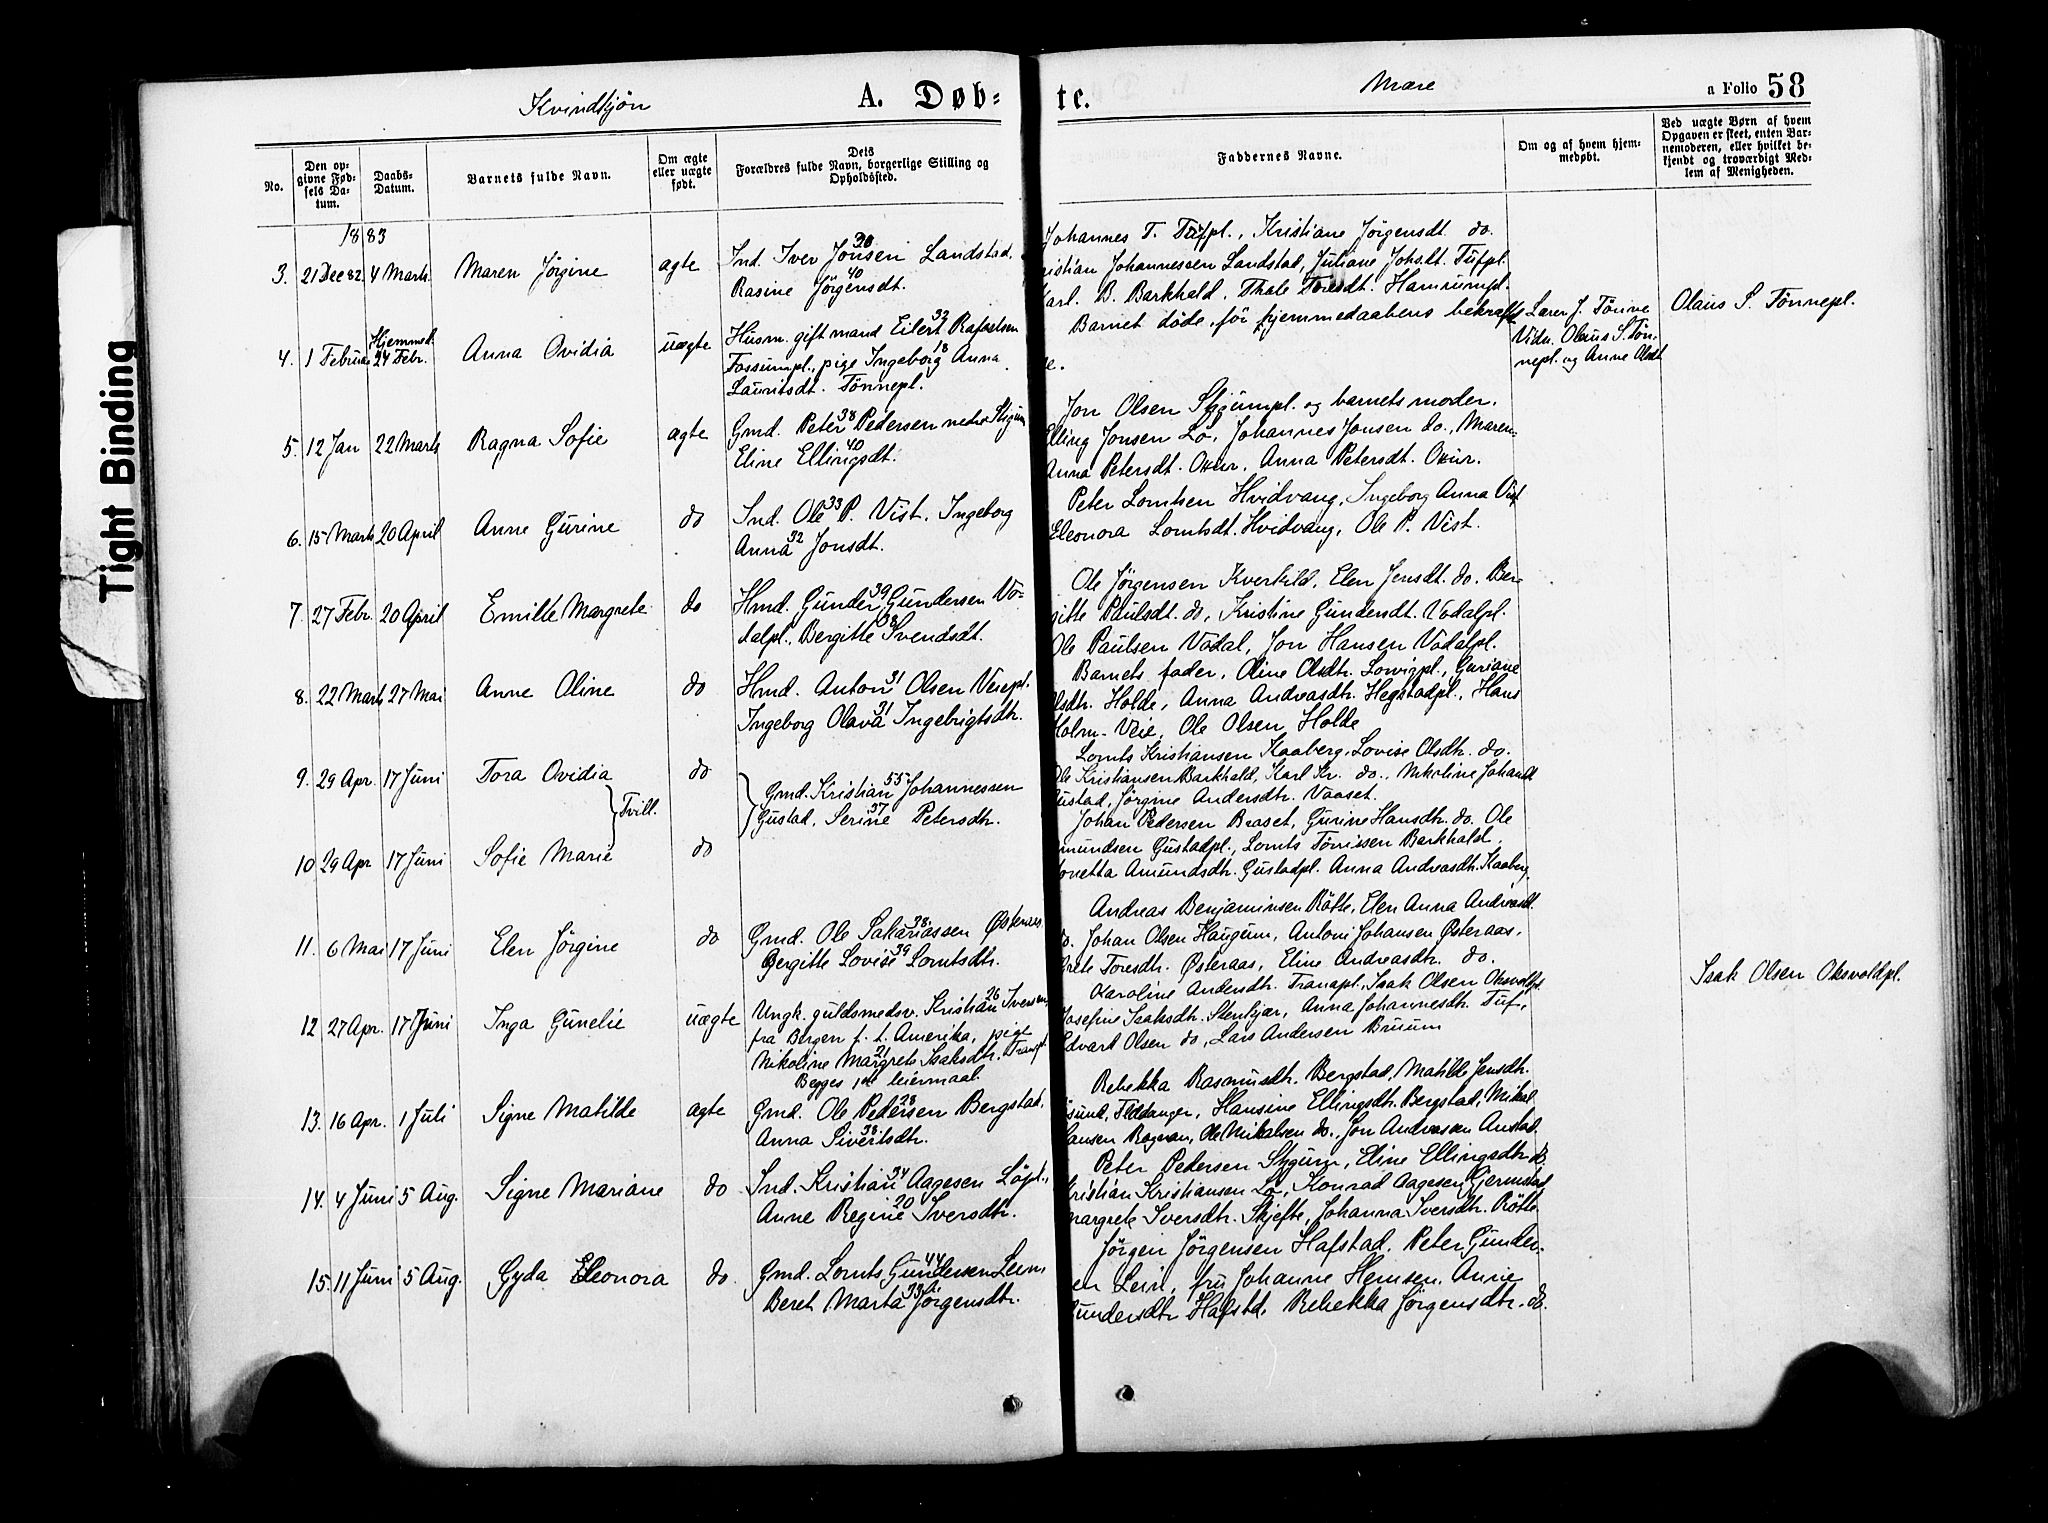 Tight Binding
Kvindkjøn
A. Døbte.
Mære
a Folio 58
No.
Den opgivne Fødsels Datum.
Daabs-Datum.
Barnets fulde Navn.
Om ægte eller uægte født.
Dets Forældres fulde Navn, borgerlige Stilling og Opholdssted.
Faddernes Navne.
Om og af hvem hjemmedøbt.
Ved uægte Børn af hvem Opgaven er skeet, enten Barnemoderen, eller hvilket bekjendt og troværdigt Medlem af Menigheden.
1883
3. 21 Dec 82. 4 Marts Maren Jørgine ægte
Ind. Iver Jonsen 30 Landstad.
Rasine Jørgensdt. 40
Johannes T. Tufpl., Kristiane Jørgensdt. do.
Kristian Johannessen Landstad, Juliane Johsdt. Tufpl.
Karl. B. Barkhald, Thale Toresdt. Hamrumpl.
4. 1 Februar Hjemmed. 24 Febr. Anna Ovidia uægte
Husm. gift mand Eilert 32 Rafaelsen
Fossumpl., pige Ingeborg 18 Anna
Lauritsdt. Tønnepl.
Barnet døde, før hjemmedaabens bekræftel-
se.
Lærer J. Tønne
Vidn. Olaus S. Tøn-
nepl. og Anne Olsdt
Olaus S. Tønnepl.
5. 12 Jan 22 Marts Ragna Sofie ægte
Gmd. Peter 38 Pedersen nedre Stigum
Eline Ellingsdt. 40
Jon Olsen Stigumpl. og barnets moder.
Elling Jonsen Lø, Johannes Jonsen do., Maren
Anna Petersdt. Okur. Anna Petersdt. Okur.
6. 15 Marts 20 April Anne Gurine do
Ind. Ole 33 P. Vist. Ingeborg
Anna 32 Jonsdt.
Peter Lorntsen Hvidvang, Ingeborg Anna Vist
Eleonora Lorntsdt. Hvidvang, Ole P. Vist.
7. 27 Febr. 20 April Emilie Margrete do
Hmd. Gunder 39 Gundersen Vo-
dalpl. Bergitte 38 Svendsdt.
Ole Jørgensen Kverkild, Elen Jensdt. do. Ber-
gitte Paulsdt. do, Kristine Gundersdt. Vodalpl.
Ole Paulsen Vodal, Jon Hansen Vodalpl.
8. 22 Marts 27 Mai Anne Oline do
Hmd. Anton 31 Olsen Veiepl.
Ingeborg Olava 31 Ingebrigtsdtr.
Barnets fader, Oline Olsdtr. Lorvigpl., Guriane
Olsdtr. Holde, Anna Andreasdtr. Hegstadpl., Hans
Holm-Veie, Ole Olsen Holde
9. 29 Apr. 17 Juni Tora Ovidia do
Tvill.
Gmd. Kristian 55 Johannessen
Gustad, Serine 37 Petersdtr.
Lornts Kristiansen Kaaberg, Lovise Olsdtr. do.
Ole Kristiansen Barkhald, Karl Kr. do., Nikoline Johansdt
Gustad, Jørgine Andersdtr. Vaaset.
10 29 Apr 17 Juni Sofie Marie do
Johan Pedersen Braset, Gurine Hansdtr. do. Ole
Amundsen Gustadpl., Lornts Tønnesen Barkhald,
Jonetta Amundsdtr. Gustadpl. Anna Andreasdtr. Kaaberg
11. 6 Mai 17 Juni Elen Jørgine do
Gmd. Ole Sakariassen 38 Østeraas
Bergitte Lovise 39 Lorntsdtr.
Andreas Benjaminsen Røtte, Elen Anna Andreasdt.
do. Johan Olsen Haugum, Antoni Johansen Østeraas,
Grete Toresdtr. Østeraas, Eline Andreasdtr. do.
12 27 Apr. 17 Juni Inga Gunelie uægte
Ungk. guldsmedsv. Kristian 26 Iversen
fra Bergen f. t. Amerika, pige
Nikoline Margrete 21 Isaksdtr. Tranapl
Begges 1ste leiermaal.
Karoline Andersdtr. Tranapl., Isak Olsen Oksvoldpl
Josefine Isaksdtr. Stenkjær, Anna Johannesdtr. Tuf,
Edvart Olsen do, Lars Andersen Bruum
Isak Olsen Oksvoldpl.
13. 16 Apr. 1 Juli Signe Matilde ægte
Gmd. Ole Pedersen 28 Bergstad,
Anna Sivertsdtr. 38
Rebekka Rasmusdtr. Bergstad, Matilde Jensdtr.
Hansine Ellingsdtr. Bergstad, Mikal
Hansen Rognan, Ole Mikalsen do., Jon Andreasen Anstad
14. 4 Juni 5 Aug. Signe Mariane do
Ind. Kristian 34 Aagesen Løpl.,
Anne Regine 20 Iversdtr.
Peter Pedersen Stigum, Eline Ellingsdtr do.
Kristian Kristiansen Lø, Konrad Aagesen Gjermstad
Margrete Iversdtr. Skjefte, Johanna Iversdtr. Røtte
15. 11 Juni 5 Aug. Gyda Eleonora do.
Gmd. Lornts Gundersen 44 Lein,
Beret Marta 33 Jørgensdtr.
Jørgen Jørgensen Hafstad. Peter Gunder-
sen Lein, fru Johanne Hemsen, Anne
Gundersdtr Hafstd, Rebekka Jørgensdtr. do.